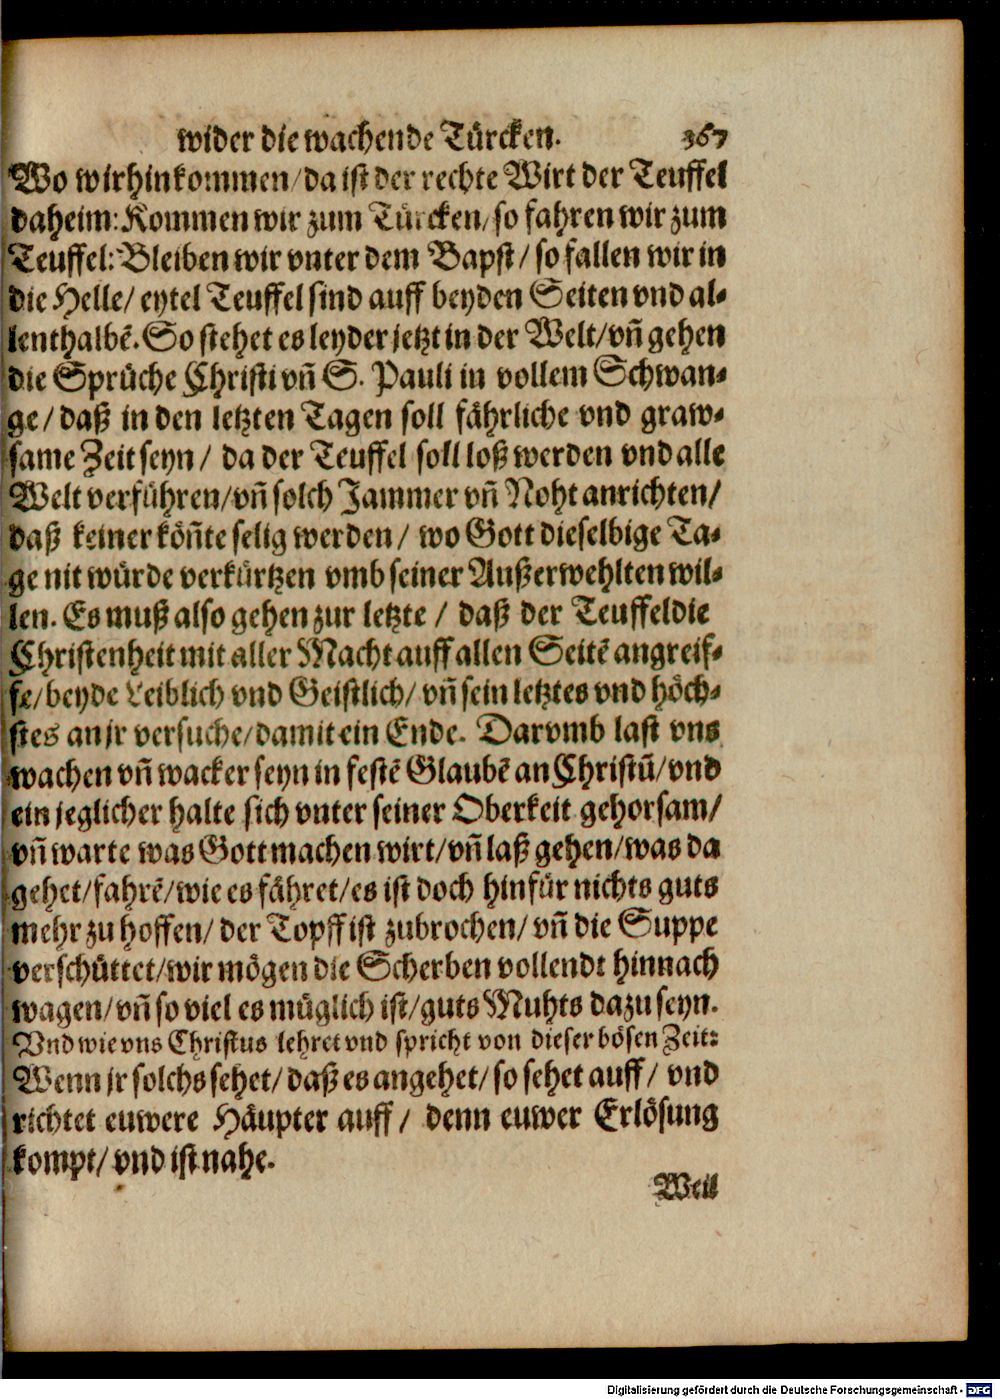 wider die wachende Türcken. 367
Wo wir hin kommen/ da ist der rechte Wirt der Teuffel
daheim: Kommen wir zum Türcken/ so fahren wir zum
Teuffel: Bleiben wir vnter dem Bapst/ so fallen wir in
die Helle/ eytel Teuffel sind auff beyden Seiten vnd al-
lenthalbẽ. So stehet es leyder jetzt in der Welt/ vñ gehen
die Sprüche Christi vñ S. Pauli in vollem Schwan-
ge/ daß in den letzten Tagen soll fährliche vnd graw-
same Zeit seyn/ da der Teuffel soll loß werden vnd alle
Welt verführen/ vñ solch Jammer vñ Noht anrichten/
daß keiner köñte selig werden/ wo Gott dieselbige Ta-
ge nit würde verkürtzen vmb seiner Außerwehlten wil-
len. Es muß also gehen zur letzte/ daß der Teuffel die
Christenheit mit aller Macht auff allen Seitẽ angreif-
fe/ beyde Leiblich vnd Geistlich/ vñ sein letztes vnd höch-
stes an jr versuche/ damit ein Ende. Darvmb last vns
wachen vñ wacker seyn in festẽ Glaubẽ an Christũ/ vnd
ein jeglicher halte sich vnter seiner Oberkeit gehorsam/
vñ warte was Gott machen wirt/ vñ laß gehen/ was da
gehet/ fahrẽ/ wie es fähret/ es ist doch hinfür nichts guts
mehr zu hoffen/ der Topff ist zubrochen/ vñ die Suppe
verschüttet/ wir mögen die Scherben vollendt hinnach
wagen/ vñ so viel es müglich ist/ guts Muhts dazu seyn.
Vnd wie vns Christus lehret vnd spricht von dieser bösen Zeit:
Wenn jr solchs sehet/ daß es angehet/ so sehet auff/ vnd
richtet euwere Häupter auff/ denn euwer Erlösung
kompt/ vnd ist nahe.
Weil
Digitalisierung gefördert durch die Deutsche Forschungsgemeinschaft - DFG